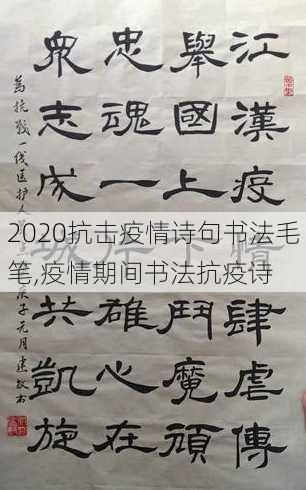 江漢疫情肆虐傳
舉國上下鬥魔頑
忠魂一片雄心在
衆志成城共凱旋
为抗战一线医护人
庚子元月
2020抗击疫情诗句书法毛
笔,疫情期间书法抗疫诗